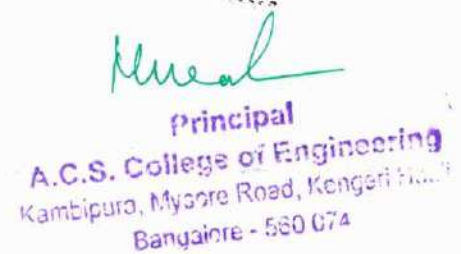 Principal
A.C.S. College of Engineering
Kambipura, Mysore Road, Kengeri
Bangalore - 560 074